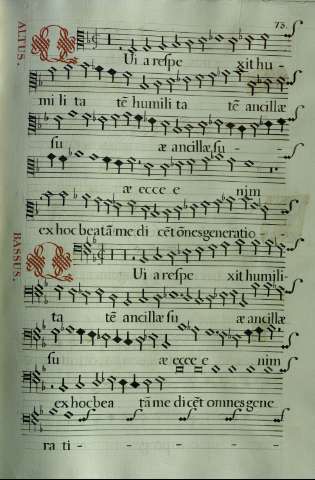 73.
ALTUS.
Q Ui a respe xit hu-
mi li ta tẽ humili ta tẽ ancillæ
su æ ancillæ su - -
æ ecce e nim
ex hoc beatã me di cẽt õnes generatio
BASSUS.
Q Ui a respe xit humili-
ta tẽ ancillæ su æ ancillæ
su æ ecce e nim
ex hoc bea tã me di cẽt omnes gene
ra ti - - - - -